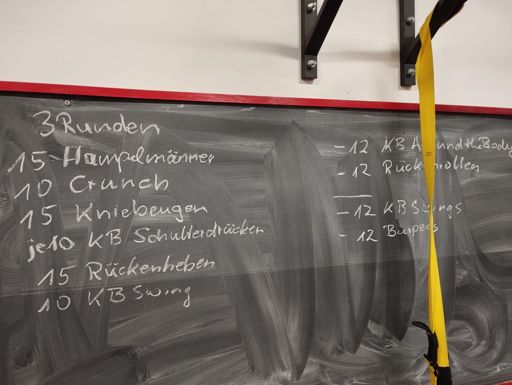 3 Runden
15 Hampelmänner
10 Crunch
15 Kniebeugen
je 10 KB Schulterdrücken
15 Rückenheben
10 KB Swing
- 12 KB Around the Body
- 12 Rückenrollen
- 12 KB Swings
- 12 Burpees